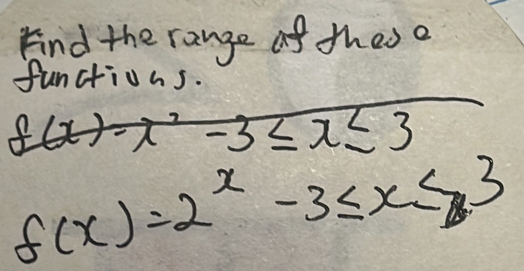 Find the range of these
functions.
f(x) = x² -3 ≤ x ≤ 3
f(x) = 2^x -3 ≤ x ≤ 3